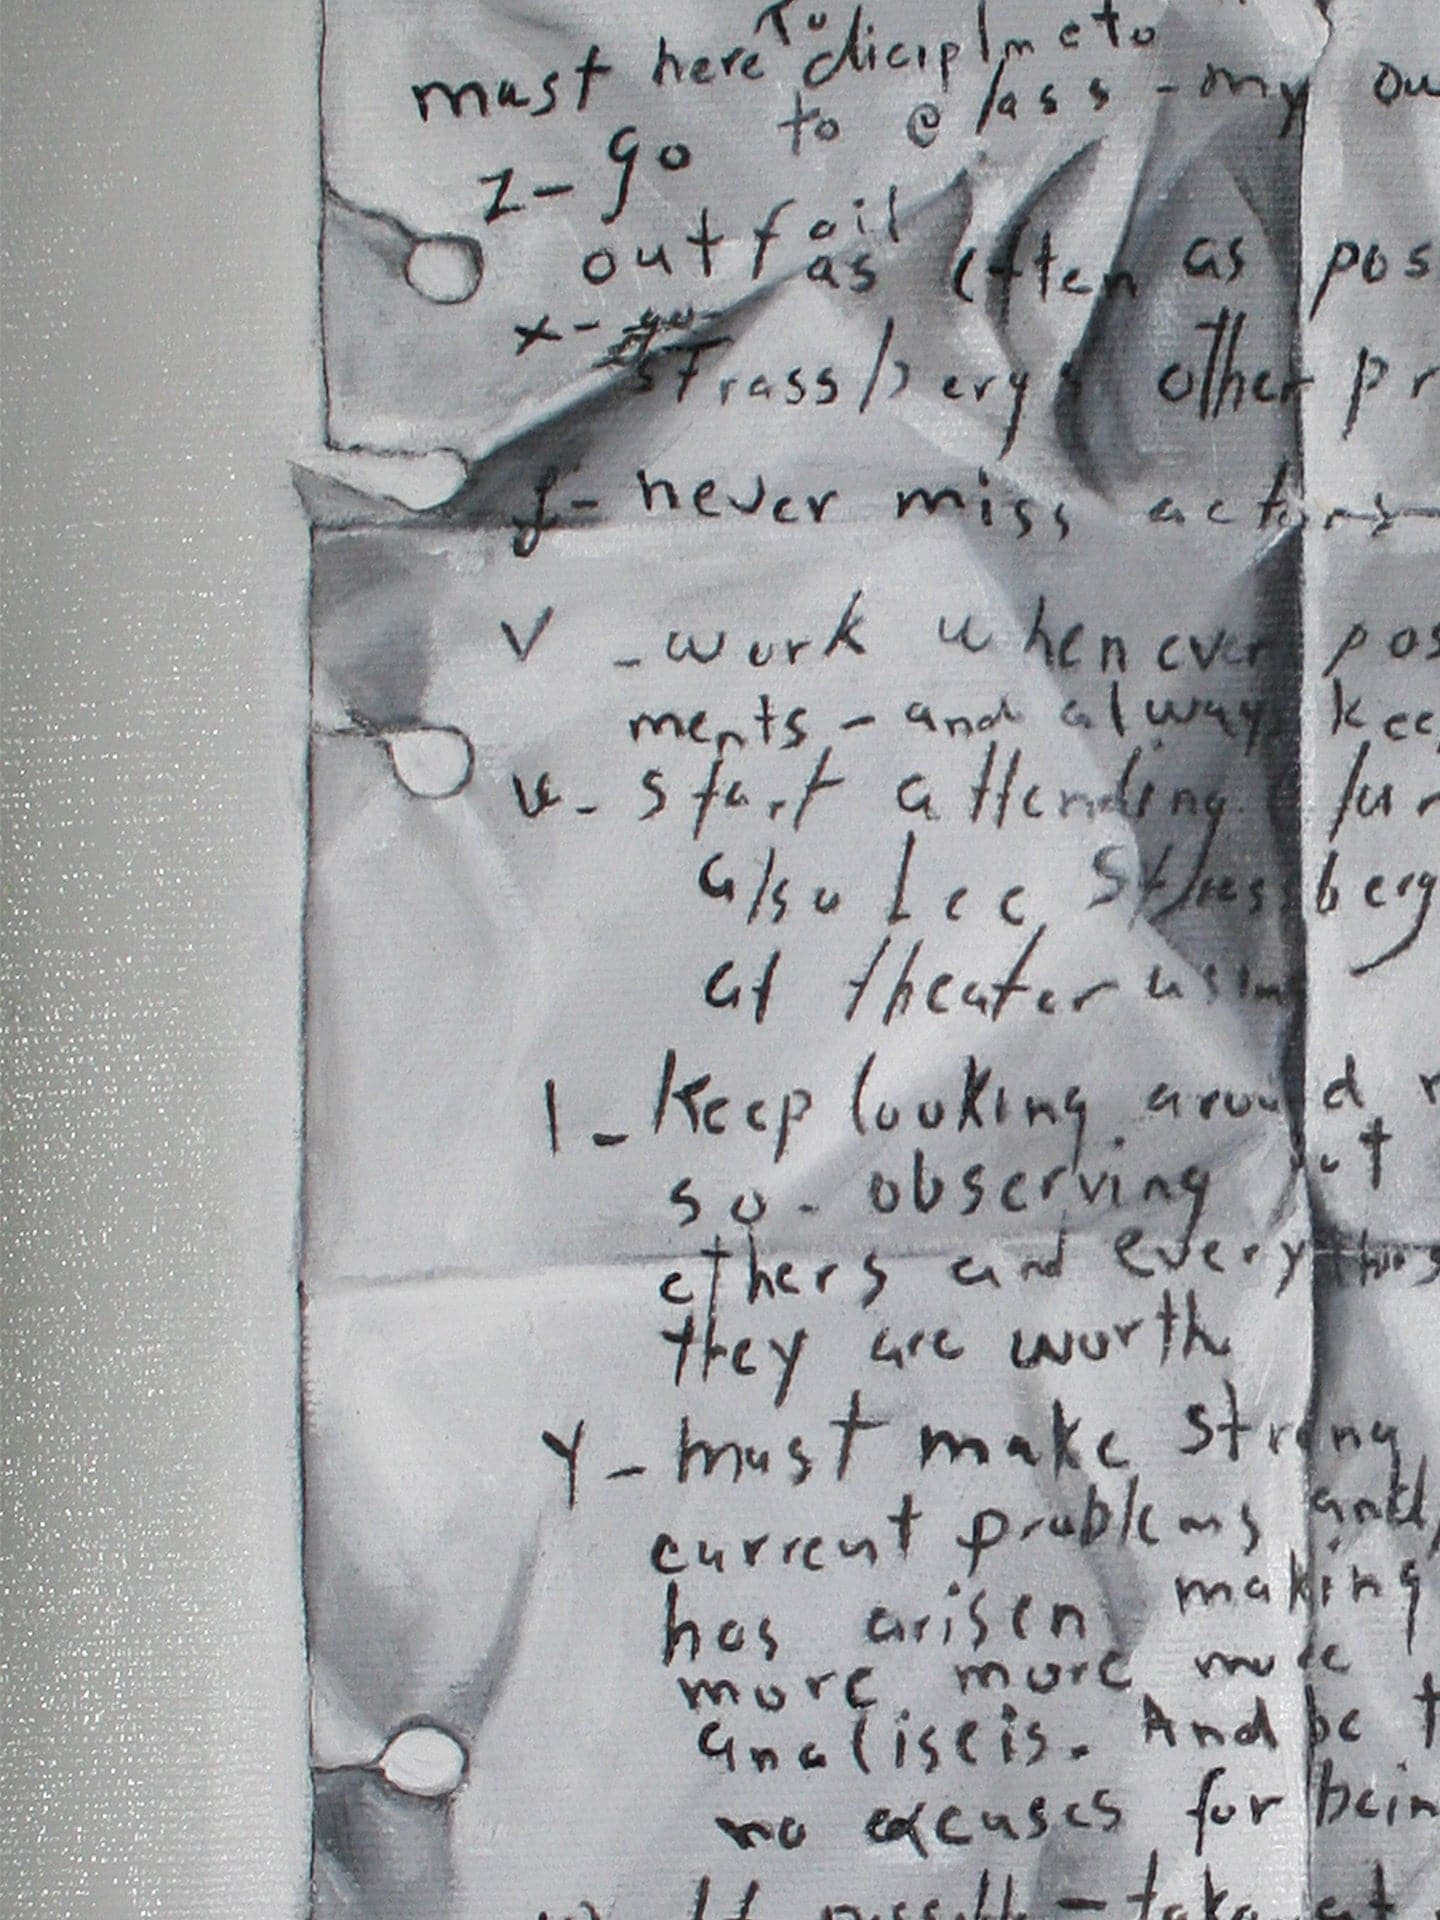 must here To diciplmeto
z- go to class - my ou
out fail
as often as pos
x - go
strassbergs other pr
f- never miss actors
V - work whenever pos
ments - and always kee
u - start attending
also Lee Strassberg
at theater
1 - Keep looking around
so - observing but
others and everything
they are worth
Y - must make strong
current problems and
has arisen making
more more more
analiseis. And be t
no excuses for bein
w If possible - take at